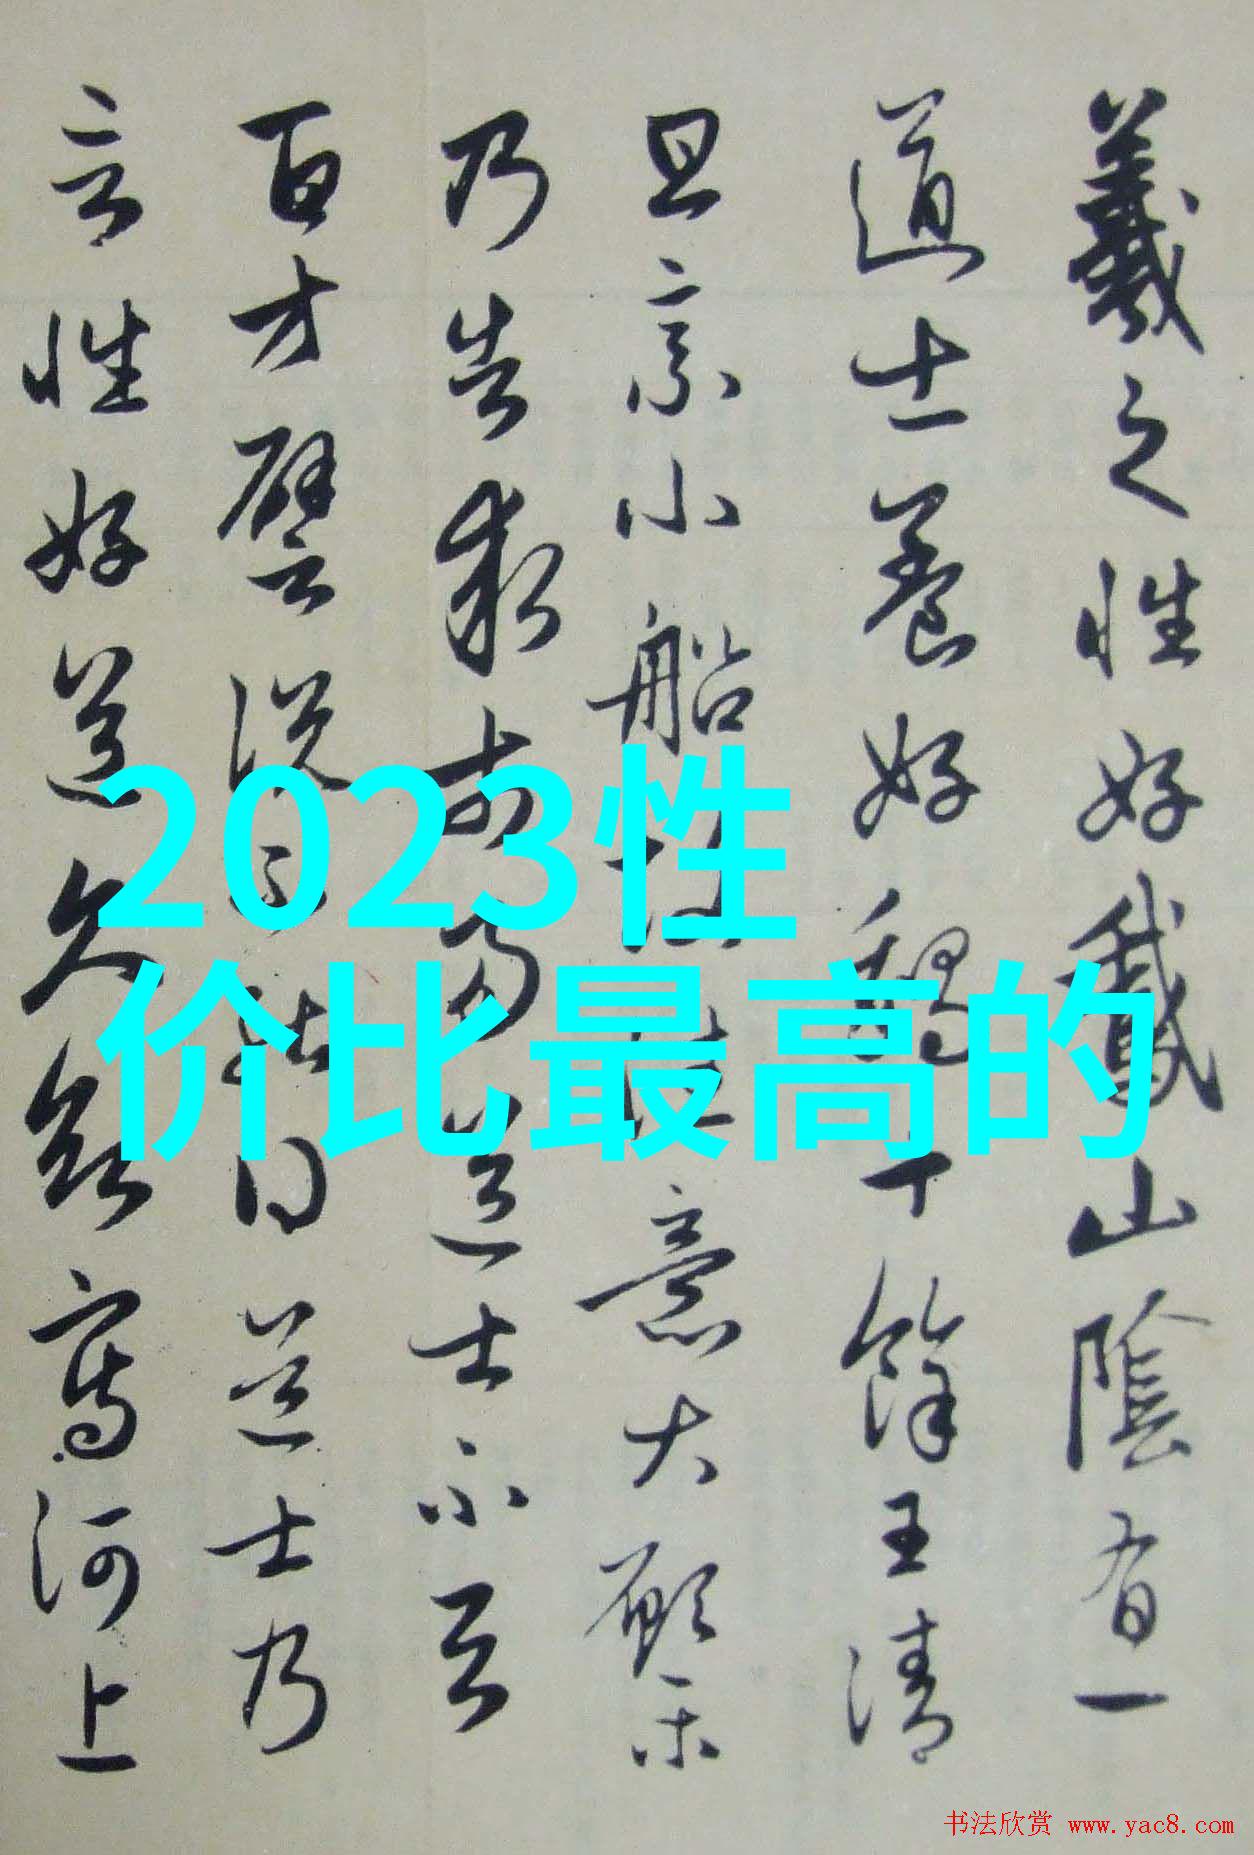 羲之性好鵞山陰有一
道士養好鵝十餘王清
旦乘小船故往意大願樂
乃告求市易道士不与
百方譬说不能得道士乃
言性好道久欲寫河上
2023性
价比最高的
书法欣赏 www.yac8.com